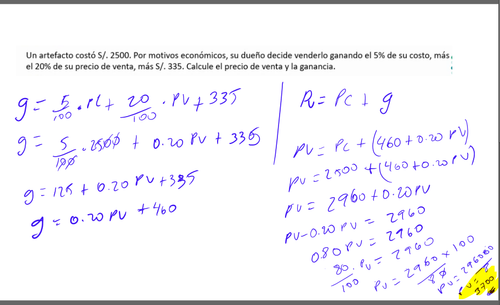 Un artefacto costó S/. 2500. Por motivos económicos, su dueño decide venderlo ganando el 5% de su costo, más
el 20% de su precio de venta, más S/. 335. Calcule el precio de venta y la ganancia.
g = 5/100 . PC + 20/100 . PV + 335
g = 5/100 . 2500 + 0.20 PV + 335
g = 125 + 0.20 PV + 335
g = 0.20 PV + 460
R = PC + g
PV = PC + (460 + 0.20 PV)
PV = 2500 + (460 + 0.20 PV)
PV = 2960 + 0.20 PV
PV - 0.20 PV = 2960
0.80 PV = 2960
80/100 . PV = 2960
PV = 2960 x 100/80
PV = 296000/8
PV = 3700